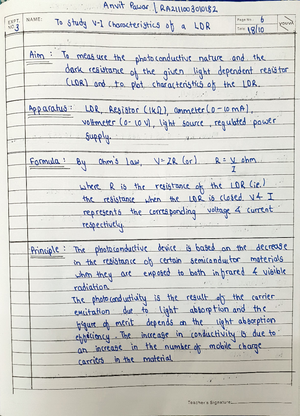 Amrit Pawar | RA2111003010182
EXPT. NO. 3
NAME: To study V-I Characteristics of a LDR
Page No.: 6
Date: 18/10
YOUVA
Aim : To measure the photoconductive nature and the
dark resistance of the given light dependent resistor
(LDR) and to plot characteristics of the LDR.
Apparatus : LDR, Resistor (1KΩ), ammeter (0-10 mA),
voltmeter (0-10V), light source, regulated power
supply.
Formula : By ohm's law, V=IR (or) R = V/I ohm
where R is the resistance of the LDR (i.e.)
the resistance when the LDR is closed. V & I
represents the corresponding voltage & current
respectively.
Principle : The photoconductive device is based on the decrease
in the resistance of certain semiconductor materials
when they are exposed to both infrared & visible
radiation.
The photoconductivity is the result of the carrier
excitation due to light absorption and the
figure of merit depends on the light absorption
efficiency. The increase in conductivity is due to
an increase in the number of mobile charge
carriers in the material.
Teacher's Signature